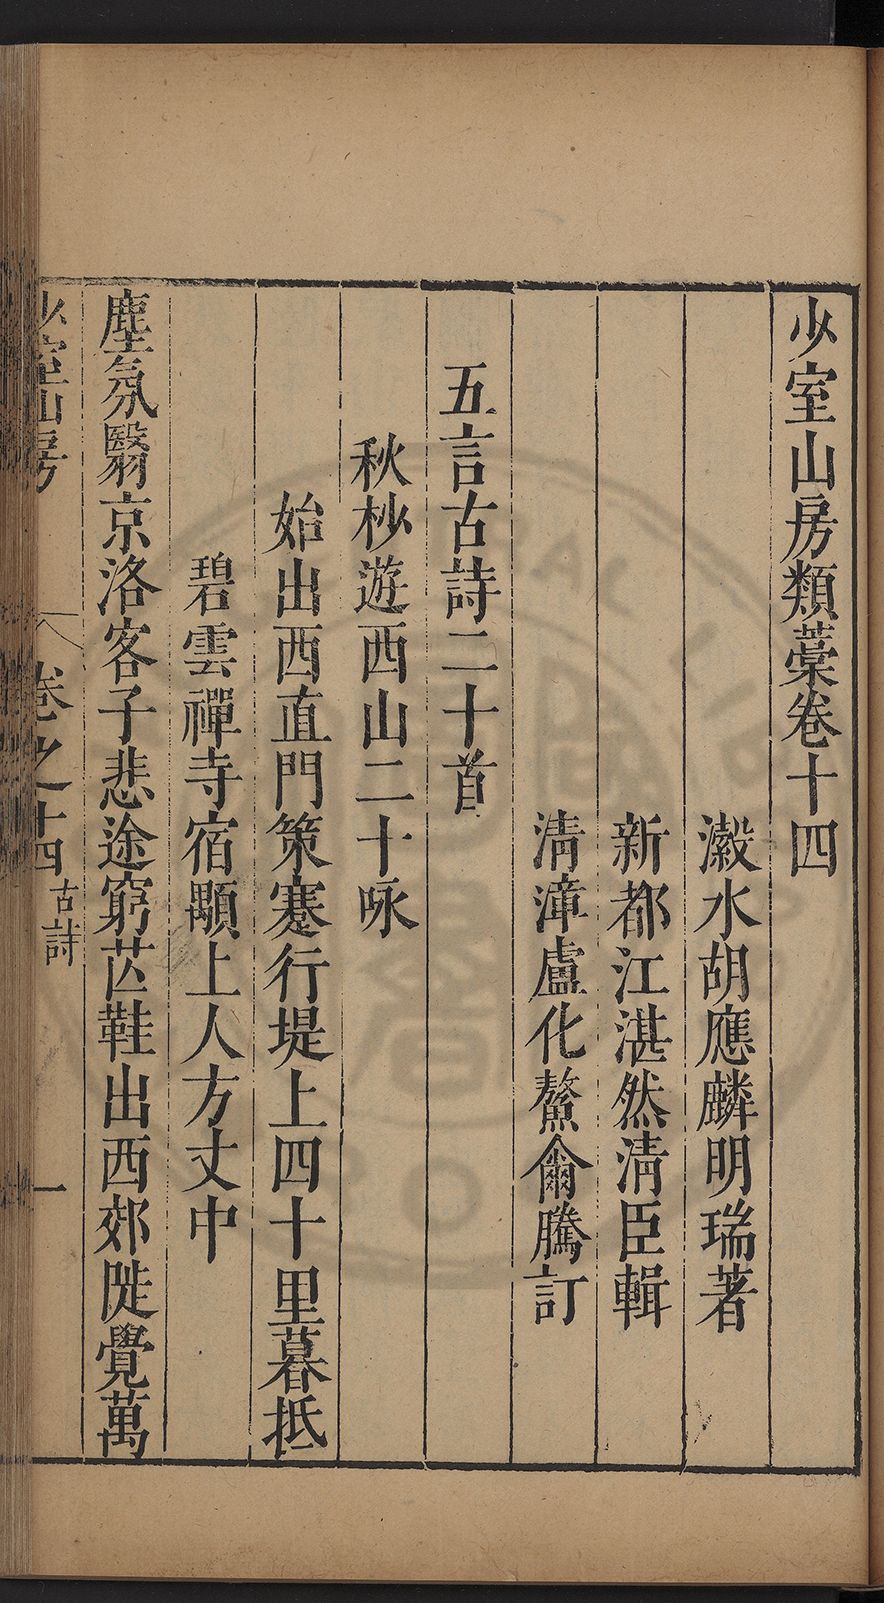 少室山房類藁卷十四
瀫水胡應麟明瑞著
新都江湛然清臣輯
清漳盧化鰲爾騰訂
五言古詩二十首
秋杪遊西山二十咏
始出西直門策蹇行堤上四十里暮抵
碧雲禪寺宿顒上人方丈中
塵氛翳京洛客子悲途窮芒鞋出西郊陡覺萬
少室山房
卷之十四
古詩
一